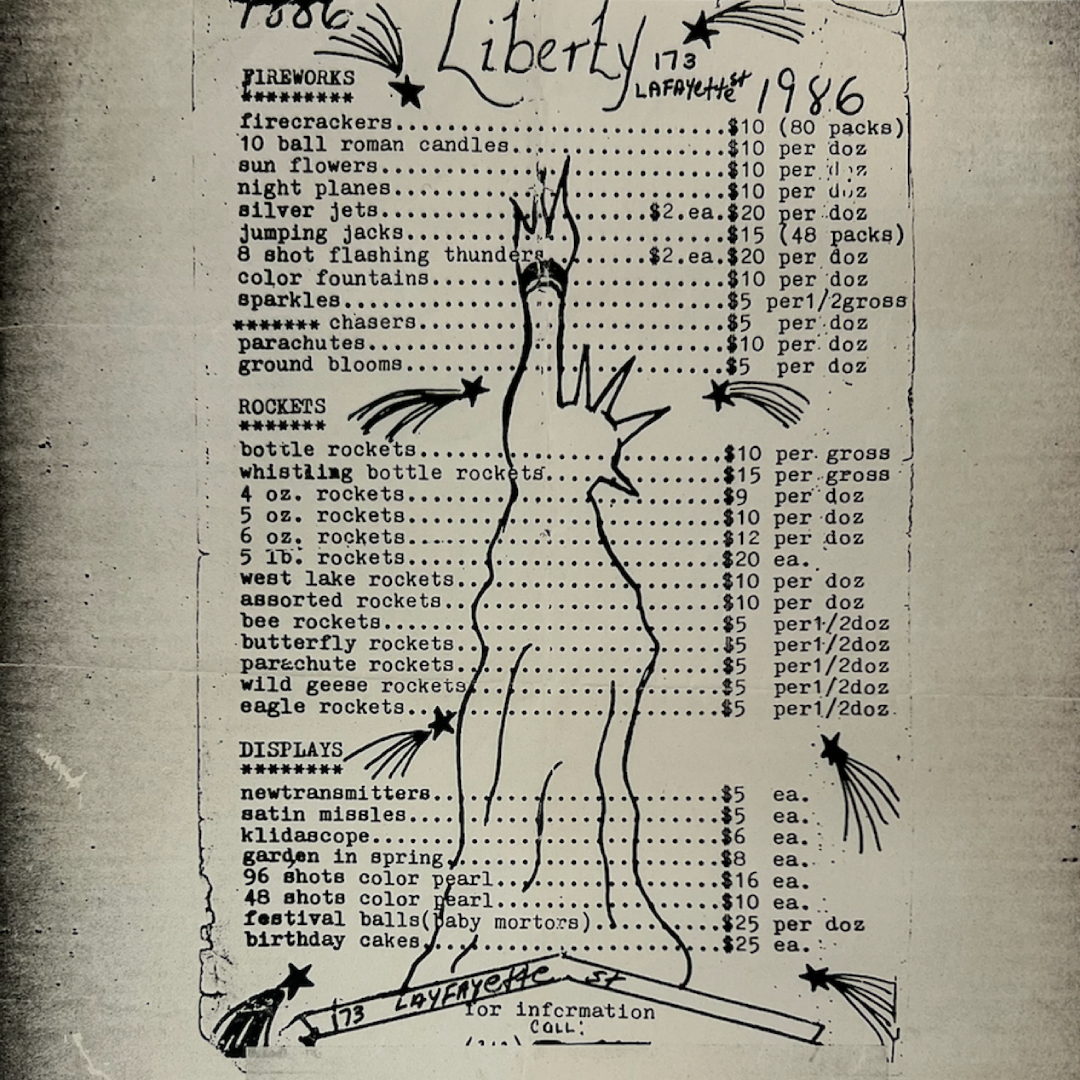 1886
Liberty
173
LAFAYette st
1986
FIREWORKS
*********
firecrackers..............................$10 (80 packs)
10 ball roman candles....................$10 per doz
sun flowers...............................$10 per doz
night planes..............................$10 per doz
silver jets.........................$2.ea.$20 per doz
jumping jacks.............................$15 (48 packs)
8 shot flashing thunders............$2.ea.$20 per doz
color fountains...........................$10 per doz
sparkles..................................$5 per1/2gross
******* chasers...........................$5 per doz
parachutes................................$10 per doz
ground blooms.............................$5 per doz
ROCKETS
*******
bottle rockets............................$10 per gross
whistling bottle rockets..................$15 per gross
4 oz. rockets.............................$9 per doz
5 oz. rockets.............................$10 per doz
6 oz. rockets.............................$12 per doz
5 lb. rockets.............................$20 ea.
west lake rockets.........................$10 per doz
assorted rockets..........................$10 per doz
bee rockets...............................$5 per1/2doz
butterfly rockets.........................$5 per1/2doz
parachute rockets.........................$5 per1/2doz
wild geese rockets........................$5 per1/2doz
eagle rockets.............................$5 per1/2doz
DISPLAYS
********
newtransmitters...........................$5 ea.
satin missles.............................$5 ea.
klidascope................................$6 ea.
garden in spring..........................$8 ea.
96 shots color pearl......................$16 ea.
48 shots color pearl......................$10 ea.
festival balls(baby mortors)..............$25 per doz
birthday cakes............................$25 ea.
173 LAYFAYette st
for information
CALL: